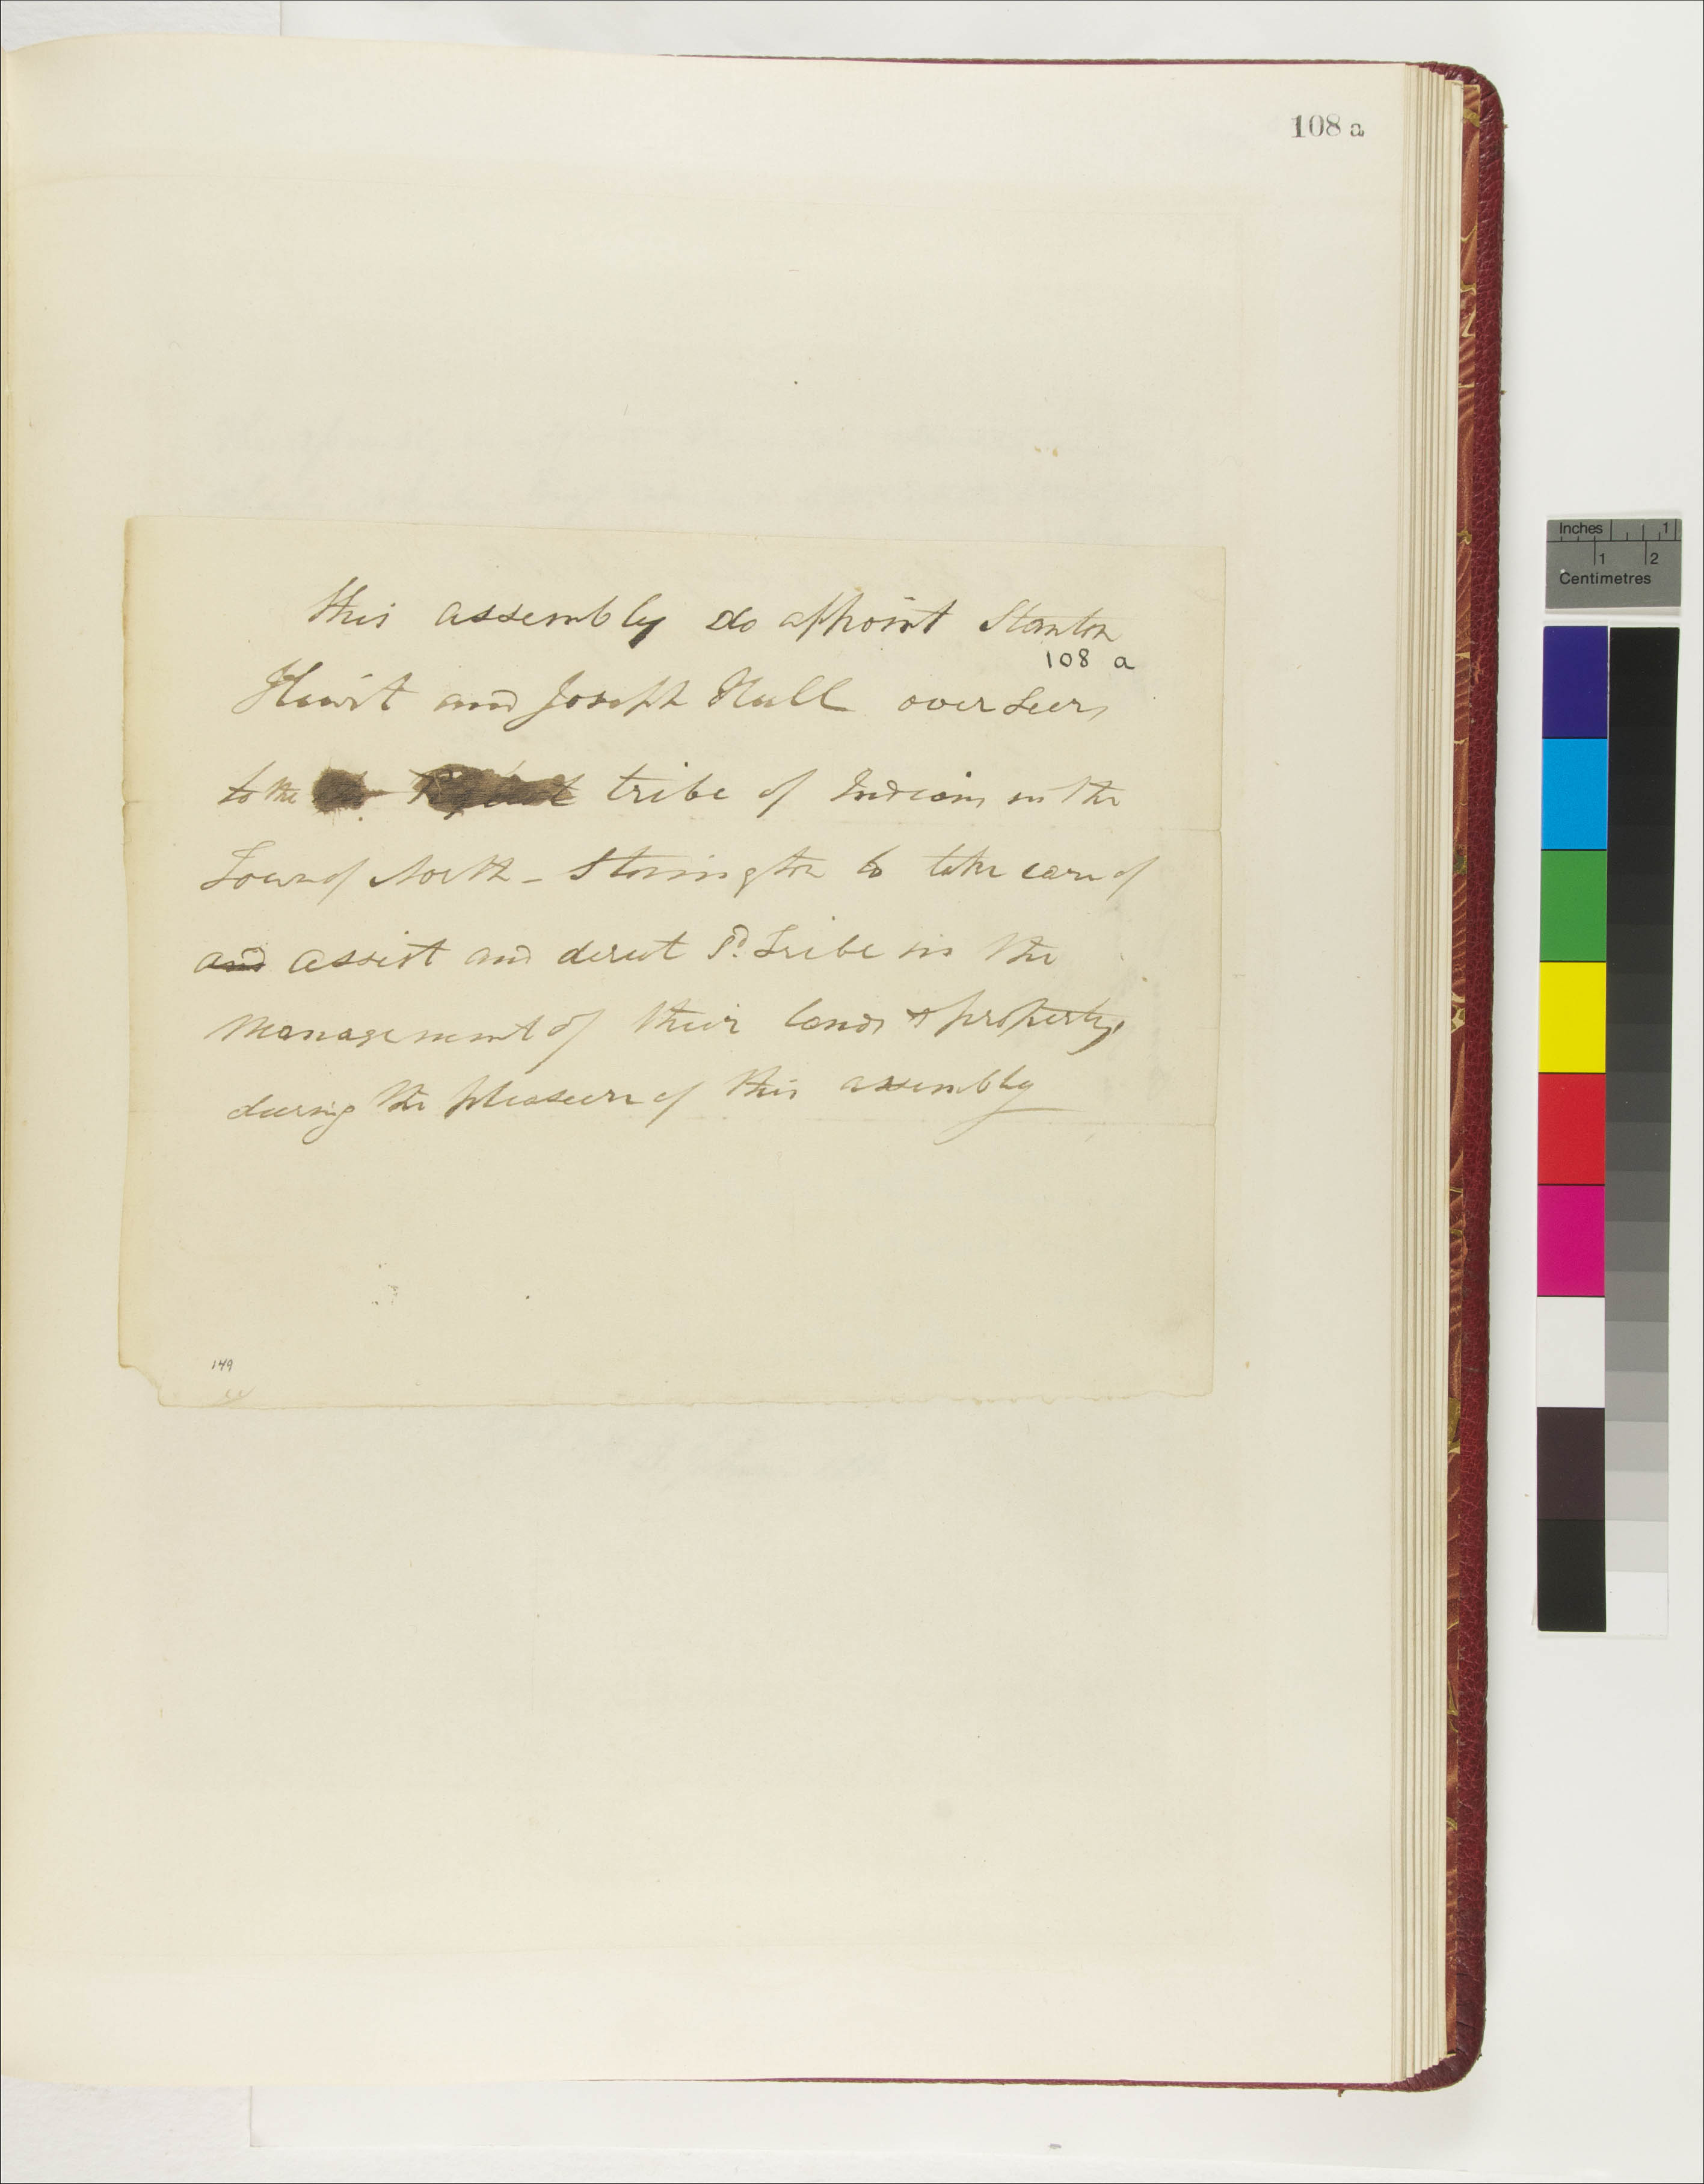 108 a
this assembly do appoint Stanton
108 a
Hewit and Joseph Hull overseers
to the tribe of Indians in the
Town of North-Stonington to take care of
and assist and direct Sd. Tribe in the
management of their lands & property,
during the pleasure of this assembly
149
Inches 1
1 2
Centimetres